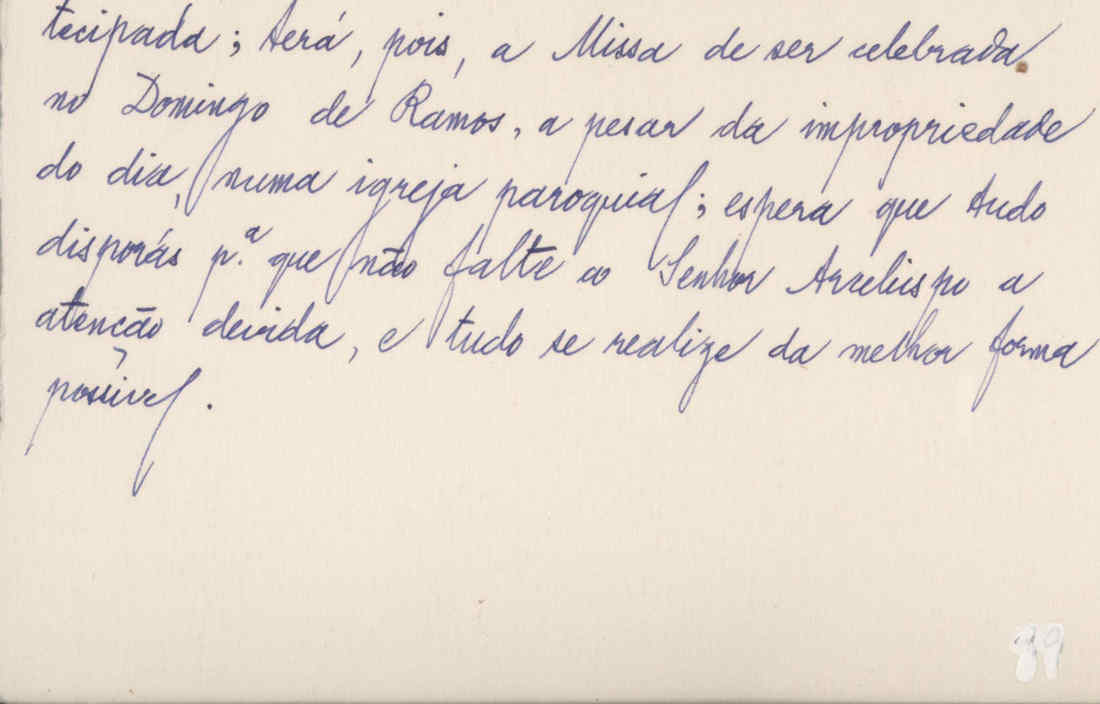 tecipada; terá, pois, a Missa de ser celebrada
no Domingo de Ramos, a pesar da impropriedade
do dia, numa igreja paroquial; espera que tudo
disporás p.ª que não falte ao Senhor Arcebispo a
atenção devida, e tudo se realize da melhor forma
possível.
89